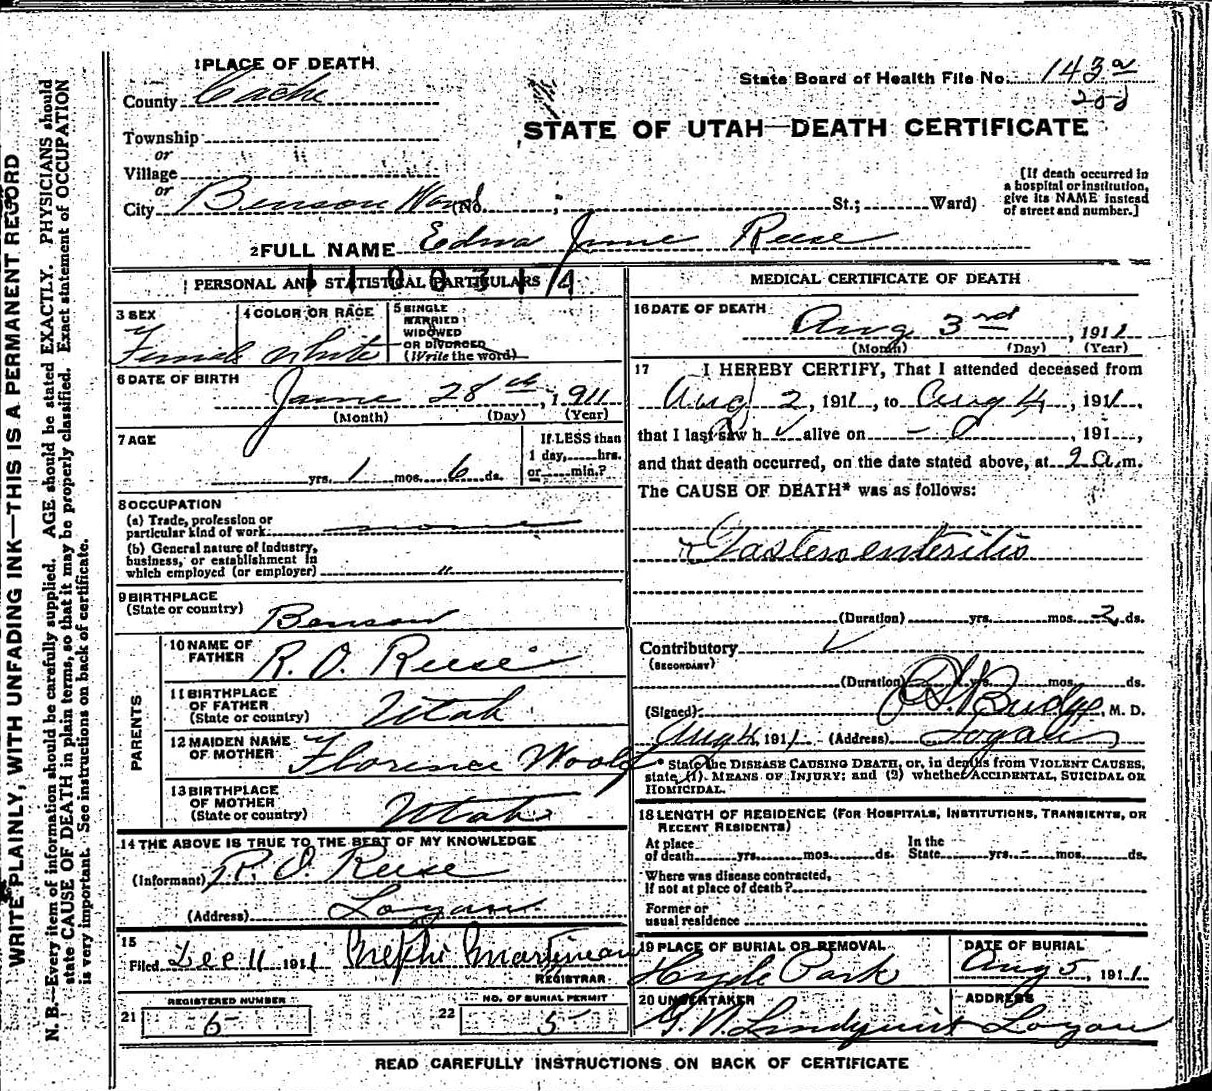 1 PLACE OF DEATH
State Board of Health File No. 143a
208
County Cache
STATE OF UTAH—DEATH CERTIFICATE
Township
or
Village
or
City Benson Ward (No. ; St.; Ward)
[If death occurred in
a hospital or institution,
give its NAME instead
of street and number.]
2 FULL NAME Edna June Reese
1100314
PERSONAL AND STATISTICAL PARTICULARS
3 SEX
Female
4 COLOR OR RACE
White
5 SINGLE
MARRIED
WIDOWED
OR DIVORCED
(Write the word)
6 DATE OF BIRTH
June 28th, 1911
(Month) (Day) (Year)
7 AGE
yrs. 1 mos. 6 ds.
If LESS than
1 day, hrs.
or min.?
8 OCCUPATION
(a) Trade, profession or
particular kind of work none
(b) General nature of industry,
business, or establishment in
which employed (or employer) "
9 BIRTHPLACE
(State or country) Benson
PARENTS
10 NAME OF
FATHER R. O. Reese
11 BIRTHPLACE
OF FATHER
(State or country) Utah
12 MAIDEN NAME
OF MOTHER Florence Woolf
13 BIRTHPLACE
OF MOTHER
(State or country) Utah
14 THE ABOVE IS TRUE TO THE BEST OF MY KNOWLEDGE
(Informant) R. O. Reese
(Address) Logan
15
Filed Dec 11 1911 Nephi Martineau
REGISTRAR
REGISTERED NUMBER
21 6
NO. OF BURIAL PERMIT
22 5
MEDICAL CERTIFICATE OF DEATH
16 DATE OF DEATH
Aug 3rd, 1911
(Month) (Day) (Year)
17 I HEREBY CERTIFY, That I attended deceased from
Aug 2, 1911, to Aug 4, 1911,
that I last saw h alive on , 191 ,
and that death occurred, on the date stated above, at 9 a.m.
The CAUSE OF DEATH* was as follows:
Gastero enteritis
(Duration) yrs. mos. 2 ds.
Contributory
(SECONDARY)
(Duration) yrs. mos. ds.
(Signed) Budge, M. D.
Aug 4, 1911 (Address) Logan
* State the DISEASE CAUSING DEATH, or, in deaths from VIOLENT CAUSES,
state (1) MEANS OF INJURY; and (2) whether ACCIDENTAL, SUICIDAL OR
HOMICIDAL.
18 LENGTH OF RESIDENCE (FOR HOSPITALS, INSTITUTIONS, TRANSIENTS, OR
RECENT RESIDENTS)
At place
of death yrs. mos. ds.
In the
State yrs. mos. ds.
Where was disease contracted,
If not at place of death?
Former or
usual residence
19 PLACE OF BURIAL OR REMOVAL
Hyde Park
DATE OF BURIAL
Aug 5, 1911
20 UNDERTAKER
Lindquist
ADDRESS
Logan
READ CAREFULLY INSTRUCTIONS ON BACK OF CERTIFICATE
WRITE PLAINLY, WITH UNFADING INK—THIS IS A PERMANENT RECORD
N. B.—Every item of information should be carefully supplied. AGE should be stated EXACTLY. PHYSICIANS should
state CAUSE OF DEATH in plain terms, so that it may be properly classified. Exact statement of OCCUPATION
is very important. See instructions on back of certificate.